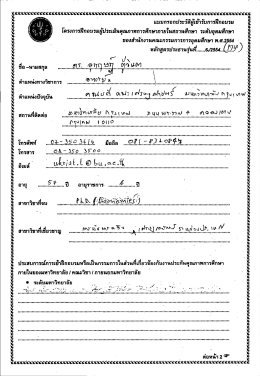 แบบกรอกประวัติผู้เข้ารับการฝึกอบรม
โครงการฝึกอบรมผู้ประเมินคุณภาพการศึกษาภายในสถานศึกษา ระดับอุดมศึกษา
ของสำนักงานคณะกรรมการการอุดมศึกษา พ.ศ.2554
หลักสูตรประธานรุ่นที่
ชื่อ -นามสกุล ดร.
ตำแหน่งทางวิชาการ อาจารย์
ตำแหน่งปัจจุบัน คณบดี คณะเศรษฐศาสตร์ มหาวิทยาลัยกรุงเทพ
สถานที่ติดต่อ มหาวิทยาลัยกรุงเทพ ถนนพระราม 4 คลองเตย
กรุงเทพ 10110
โทรศัพท์ 02-3503614 มือถือ
โทรสาร 02-350 3500
อีเมล์
อายุ ปี อายุราชการ ปี
สาขาวิชาที่จบ Ph.D. (Economics)
สาขาวิชาที่เชี่ยวชาญ
ประสบการณ์การเข้าฝึกอบรมหรือเป็นกรรมการในส่วนที่เกี่ยวข้องกับงานประกันคุณภาพการศึกษา
ภายในของมหาวิทยาลัย / คณะวิชา / ภายนอกมหาวิทยาลัย
• ระดับมหาวิทยาลัย
ต่อหน้า 2